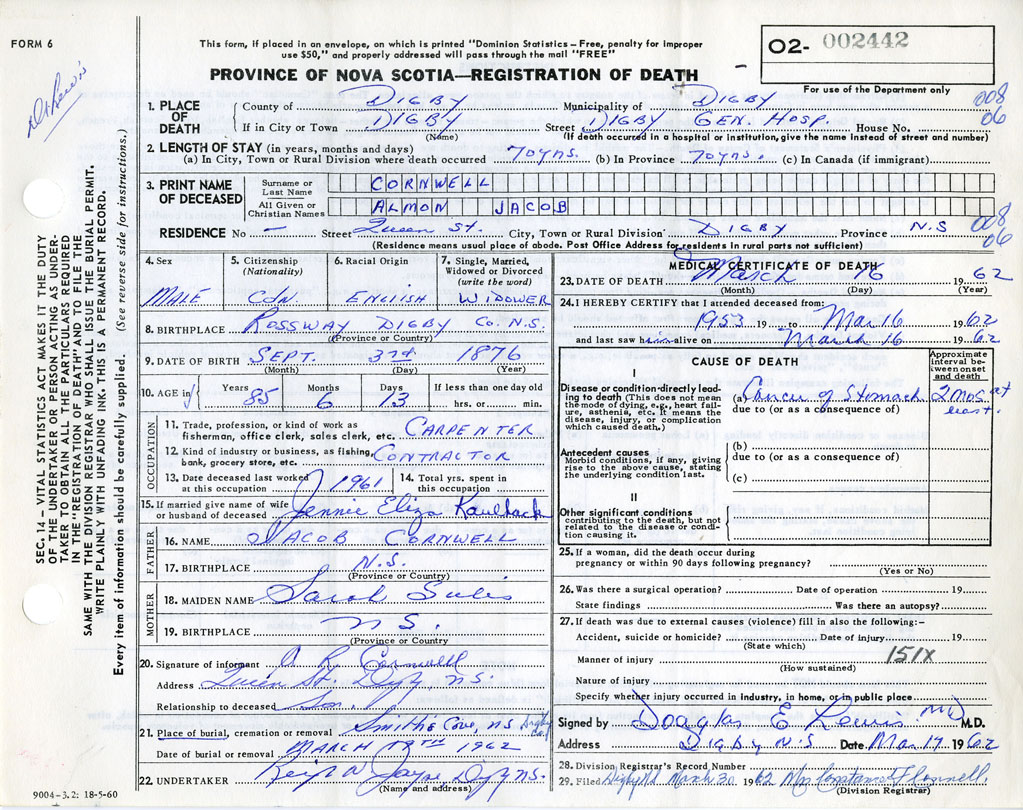 FORM 6
This form, if placed in an envelope, on which is printed "Dominion Statistics – Free, penalty for improper
use $50," and properly addressed will pass through the mail "FREE"
PROVINCE OF NOVA SCOTIA—REGISTRATION OF DEATH
O2- 002442
For use of the Department only
Dr Lewis
SEC. 14 – VITAL STATISTICS ACT MAKES IT THE DUTY
OF THE UNDERTAKER OR PERSON ACTING AS UNDER-
TAKER TO OBTAIN ALL THE PARTICULARS REQUIRED
IN THE "REGISTRATION OF DEATH" AND TO FILE THE
SAME WITH THE DIVISION REGISTRAR WHO SHALL ISSUE THE BURIAL PERMIT.
WRITE PLAINLY WITH UNFADING INK. THIS IS A PERMANENT RECORD.
Every item of information should be carefully supplied. (See reverse side for instructions.)
1. PLACE OF DEATH
County of DIGBY Municipality of DIGBY 008
If in City or Town DIGBY Street DIGBY GEN. HOSP. House No. 06
(Name) (If death occurred in a hospital or institution, give the name instead of street and number)
2. LENGTH OF STAY (in years, months and days)
(a) In City, Town or Rural Division where death occurred 70 yrs. (b) In Province 70 yrs. (c) In Canada (if immigrant)
3. PRINT NAME OF DECEASED
Surname or Last Name CORNWELL
All Given or Christian Names ALMON JACOB
RESIDENCE No – Street Queen St. City, Town or Rural Division DIGBY Province N.S 008 06
(Residence means usual place of abode. Post Office Address for residents in rural parts not sufficient)
4. Sex MALE
5. Citizenship (Nationality) CDN.
6. Racial Origin ENGLISH
7. Single, Married, Widowed or Divorced (write the word) WIDOWER
8. BIRTHPLACE ROSSWAY DIGBY Co. N.S.
(Province or Country)
9. DATE OF BIRTH SEPT. 3rd 1876
(Month) (Day) (Year)
10. AGE in Years 85 Months 6 Days 13 If less than one day old hrs. or min.
OCCUPATION
11. Trade, profession, or kind of work as
fisherman, office clerk, sales clerk, etc. CARPENTER
12. Kind of industry or business, as fishing,
bank, grocery store, etc. CONTRACTOR
13. Date deceased last worked
at this occupation 1961
14. Total yrs. spent in
this occupation
15. If married give name of wife
or husband of deceased Jennie Eliza Kaulback
FATHER
16. NAME JACOB CORNWELL
17. BIRTHPLACE N.S.
(Province or Country)
MOTHER
18. MAIDEN NAME Sarah Sulis
19. BIRTHPLACE N.S.
(Province or Country
20. Signature of informant A R Cornwell
Address Queen St. Digby, N.S.
Relationship to deceased Son.
21. Place of burial, cremation or removal Smith's Cove, N.S Digby Co.
Date of burial or removal MARCH 19TH 1962
22. UNDERTAKER Digby N.S.
(Name and address)
9004-3.2: 18-5-60
MEDICAL CERTIFICATE OF DEATH
23. DATE OF DEATH March 16 1962
(Month) (Day) (Year)
24. I HEREBY CERTIFY that I attended deceased from:
1953 19 to Mar 16 1962
and last saw him alive on March 16 1962
CAUSE OF DEATH
Approximate interval between onset and death
I
Disease or condition directly lead-
ing to death (This does not mean
the mode of dying, e.g., heart fail-
ure, asthenia, etc. It means the
disease, injury, or complication
which caused death.)
(a) Cancer of Stomach 2 mos. at least.
due to (or as a consequence of)
Antecedent causes
Morbid conditions, if any, giving
rise to the above cause, stating
the underlying condition last.
(b)
due to (or as a consequence of)
(c)
II
Other significant conditions
contributing to the death, but not
related to the disease or condi-
tion causing it.
25. If a woman, did the death occur during
pregnancy or within 90 days following pregnancy?
(Yes or No)
26. Was there a surgical operation? Date of operation 19
State findings Was there an autopsy?
27. If death was due to external causes (violence) fill in also the following:–
Accident, suicide or homicide? Date of injury 19
(State which)
Manner of injury 151X
(How sustained)
Nature of injury
Specify whether injury occurred in industry, in home, or in public place
Signed by Douglas E Lewis MD M.D.
Address DIGBY N.S Date Mar 17 1962
28. Division Registrar's Record Number
29. Filed March 20 1962 Mrs Constance
(Division Registrar)